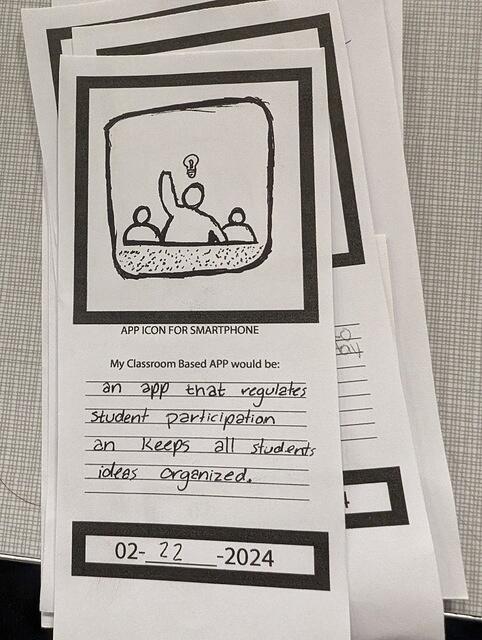 APP ICON FOR SMARTPHONE
My Classroom Based APP would be:
an app that regulates
student participation
an keeps all students
ideas organized.
02-22-2024